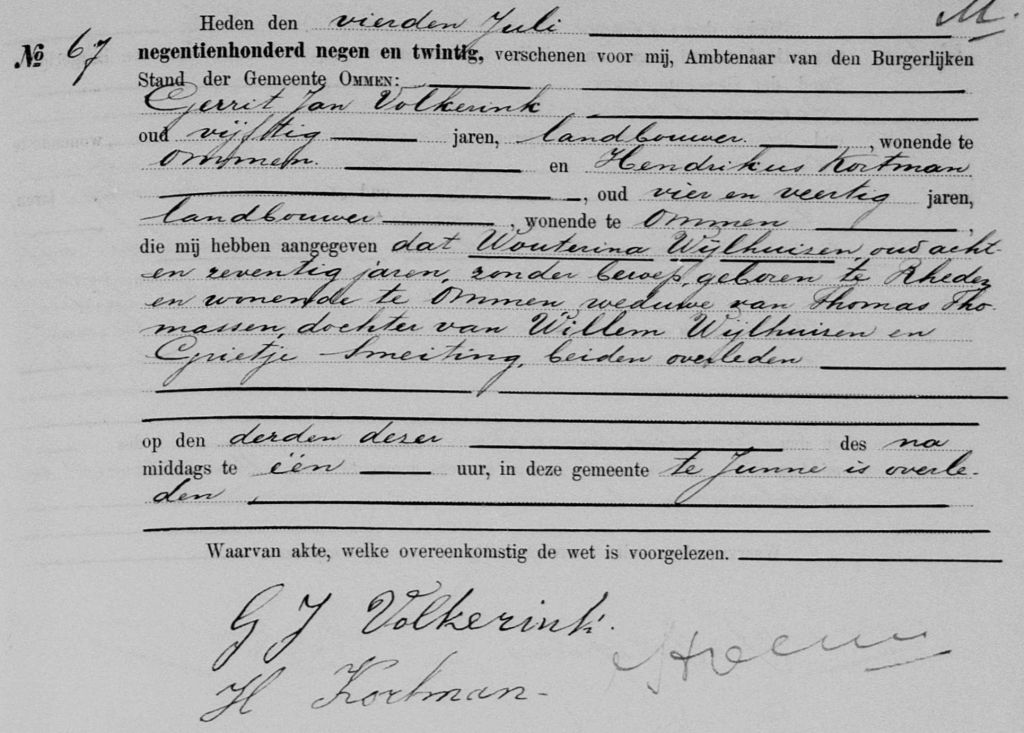 M.
Heden den vierden Juli
No 67 negentienhonderd negen en twintig, verschenen voor mij, Ambtenaar van den Burgerlijken
Stand der Gemeente OMMEN:
Gerrit Jan Volkerink
oud vijftig jaren, landbouwer, wonende te
Ommen. en Hendrikus Kortman
, oud vier en veertig jaren,
landbouwer, wonende te Ommen,
die mij hebben aangegeven dat Wouterina Wijlhuisen, oud acht
en zeventig jaren, zonder beroep, geboren te Rhezen
en wonende te Ommen, weduwe van Thomas Tho-
massen, dochter van Willem Wijlhuisen en
Grietje Smeiting, beiden overleden
op den derden dezer des na
middags te één uur, in deze gemeente te Junne is overle-
den,
Waarvan akte, welke overeenkomstig de wet is voorgelezen.
G J Volkerink.
H Kortman-